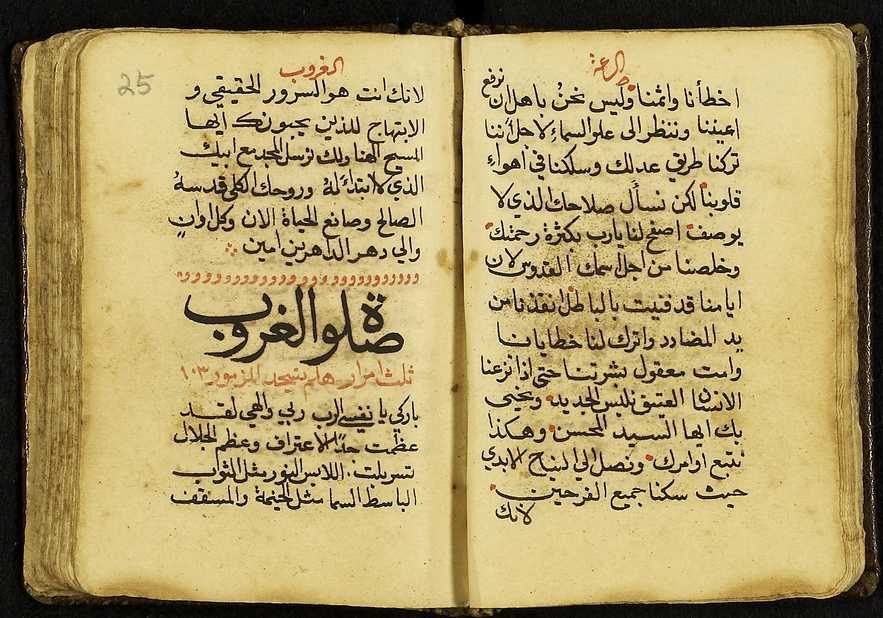 اخطأنا واثمنا وليس نحن باهل ان نرفع
اعيننا وننظر الى علو السماء لاجل اننا
تركنا طريق عدلك وسلكنا في اهواء
قلوبنا لكن نسأل صلاحك الذي لا
يوصف اصفح لنا يارب بكثرة رحمتك
وخلصنا من اجل اسمك القدوس لان
ايامنا قد فنيت بالباطل انقذنا من
يد المضادد واترك لنا خطايانا
وامت معقول بشرتنا حتى اذا نزعنا
الانسان العتيق نلبس الجديد ونحيى
بك ايها السيد المحسن وهكذا
نتبع اوامرك ونصل الى النياح الابدي
حيث سكنا جميع الفرحين
لانك
الغروب
25
لانك انت هو السرور الحقيقي و
الابتهاج للذين يحبونك ايها
المسيح الهنا ولك نرسل المجد مع ابيك
الذي لا ابتداء له وروحك الكلي قدسه
الصالح وصانع الحياة الان وكل اوان
والي دهر الداهرين امين
صلوة الغروب
ثلث امرار هلم نسجد المزمور ١٠٣
باركي يا نفسي الرب ربي والهي لقد
عظمت جدا الاعتراف وعظم الجلال
تسربلت اللابس النور مثل الثواب
الباسط السما مثل الخيمة والمسقف